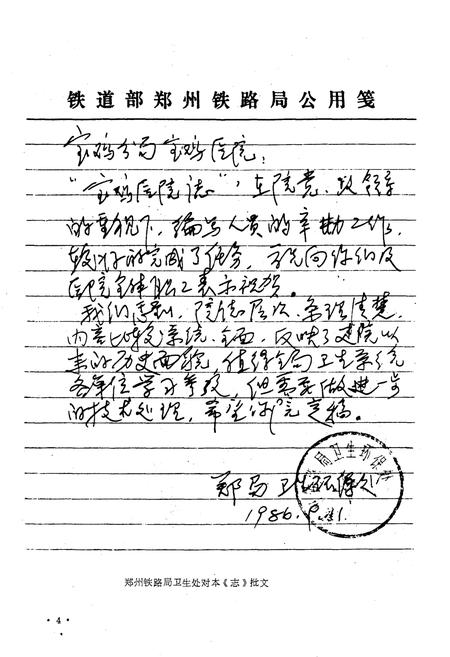 铁道部郑州铁路局公用笺
宝鸡分局宝鸡医院：
“宝鸡医院志”，在院党、政领导
的重视下，编写人员的辛勤工作，
较好的完成了任务，可说向你们及
医院全体职工表示祝贺。
我们感到，院志层次、条理清楚，
内容比较系统、全面，反映了建院以
来的历史面貌，值得全局卫生系统
各单位学习参考，但需要做进一步
的技术处理，希望审完定稿。
郑局卫生环保处
1986.9.21.
局卫生环保
郑州铁路局卫生处对本《志》批文
·4·